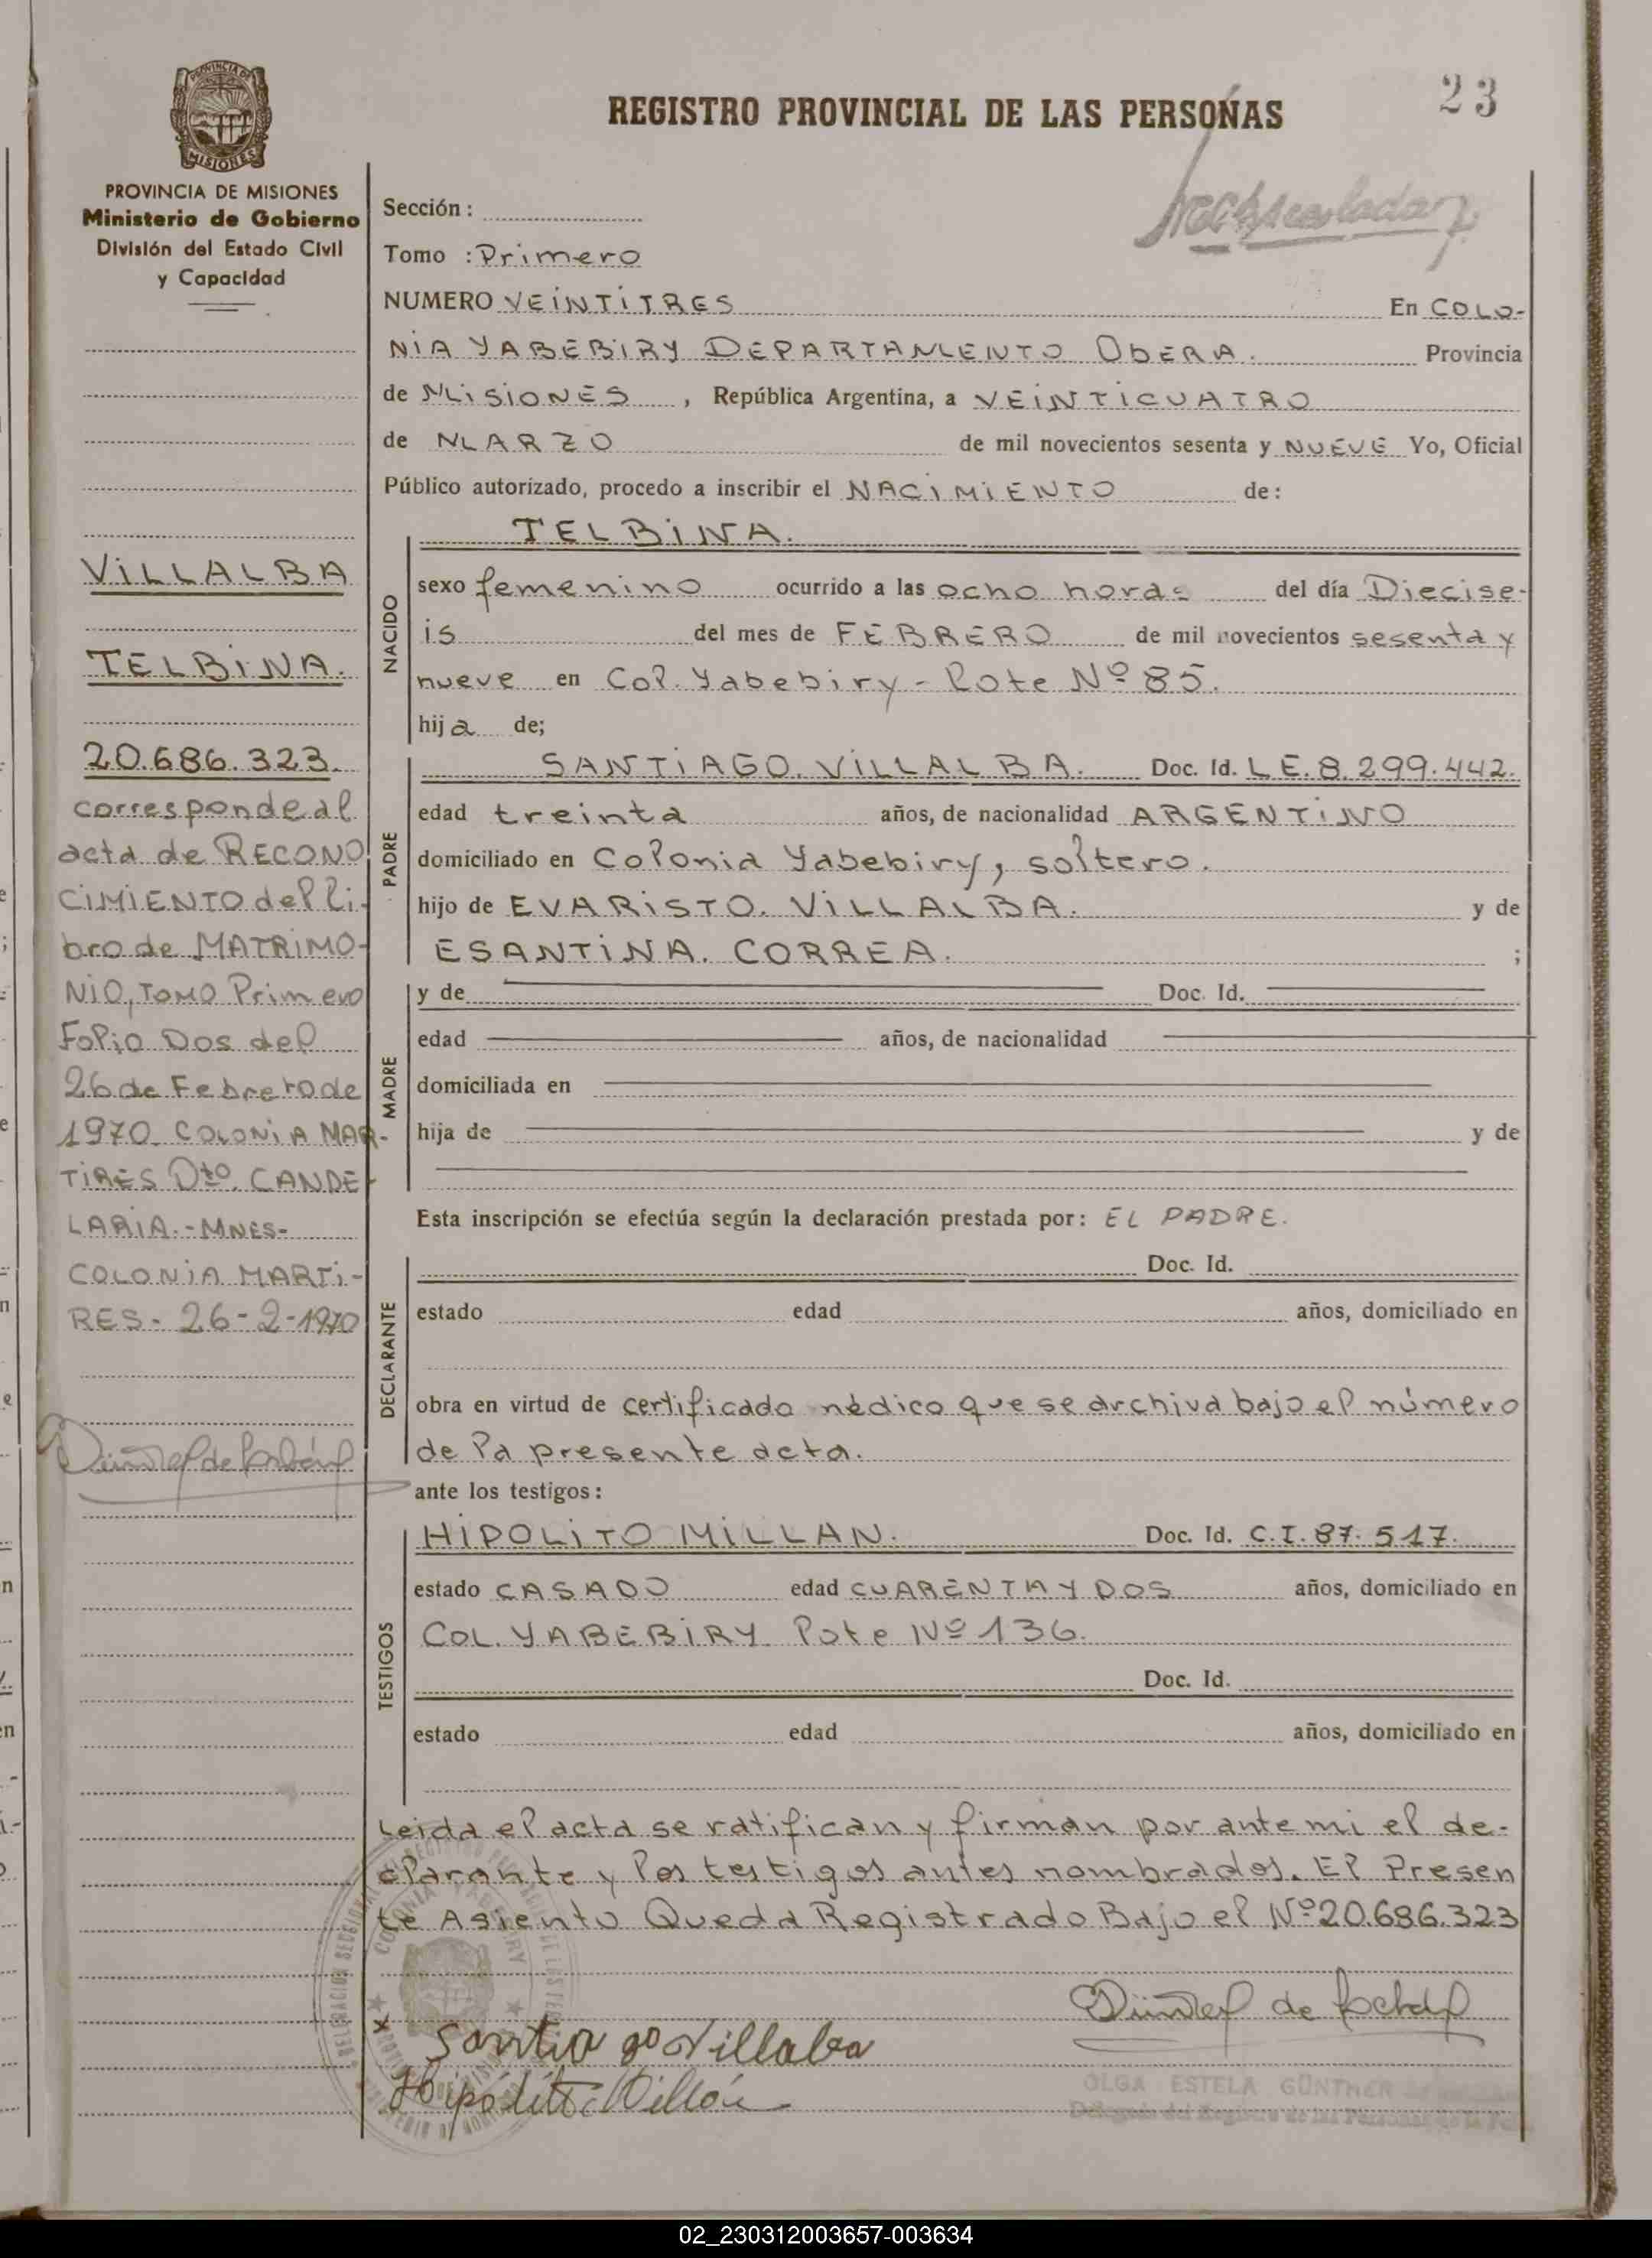 23
PROVINCIA DE
MISIONES
REGISTRO PROVINCIAL DE LAS PERSONAS
PROVINCIA DE MISIONES
Ministerio de Gobierno
División del Estado Civil
y Capacidad
VILLALBA
TELBINA.
20.686.323.
corresponde al
acta de RECONO
CIMIENTO del Li-
bro de MATRIMO-
NIO, TOMO Primero
Folio Dos del
26 de Febrero de
1970. COLONIA MAR-
TIRES Dto. CANDE-
LARIA.-MNES-
COLONIA MARTI-
RES- 26-2-1970
Sección :
Tomo : Primero
NUMERO VEINTITRES En COLO-
NIA YABEBIRY DEPARTAMENTO OBERA. Provincia
de MISIONES , República Argentina, a VEINTICUATRO
de MARZO de mil novecientos sesenta y NUEVE Yo, Oficial
Público autorizado, procedo a inscribir el NACIMIENTO de:
TELBINA.
NACIDO
sexo femenino ocurrido a las ocho horas del día Diecise-
is del mes de FEBRERO de mil novecientos sesenta y
nueve en Col. Yabebiry - Lote Nº 85.
hija de;
PADRE
SANTIAGO. VILLALBA. Doc. Id. L.E. 8.299.442.
edad treinta años, de nacionalidad ARGENTINO
domiciliado en Colonia Yabebiry, soltero.
hijo de EVARISTO. VILLALBA. y de
ESANTINA. CORREA. ;
MADRE
y de Doc. Id.
edad años, de nacionalidad
domiciliada en
hija de y de
Esta inscripción se efectúa según la declaración prestada por: EL PADRE.
DECLARANTE
Doc. Id.
estado edad años, domiciliado en
obra en virtud de certificado médico que se archiva bajo el número
de la presente acta.
ante los testigos:
TESTIGOS
HIPOLITO MILLAN. Doc. Id. C.I. 87.517.
estado CASADO edad CUARENTA Y DOS años, domiciliado en
COL. YABEBIRY Lote Nº 136.
Doc. Id.
estado edad años, domiciliado en
Leida el acta se ratifican y firman por ante mi el de-
clarante y los testigos antes nombrados. El Presen
te Asiento Queda Registrado Bajo el Nº 20.686.323
COLONIA YABEBIRY
Santiago Villalba
Hipólito Millán
OLGA ESTELA GÜNTHER
02_230312003657-003634